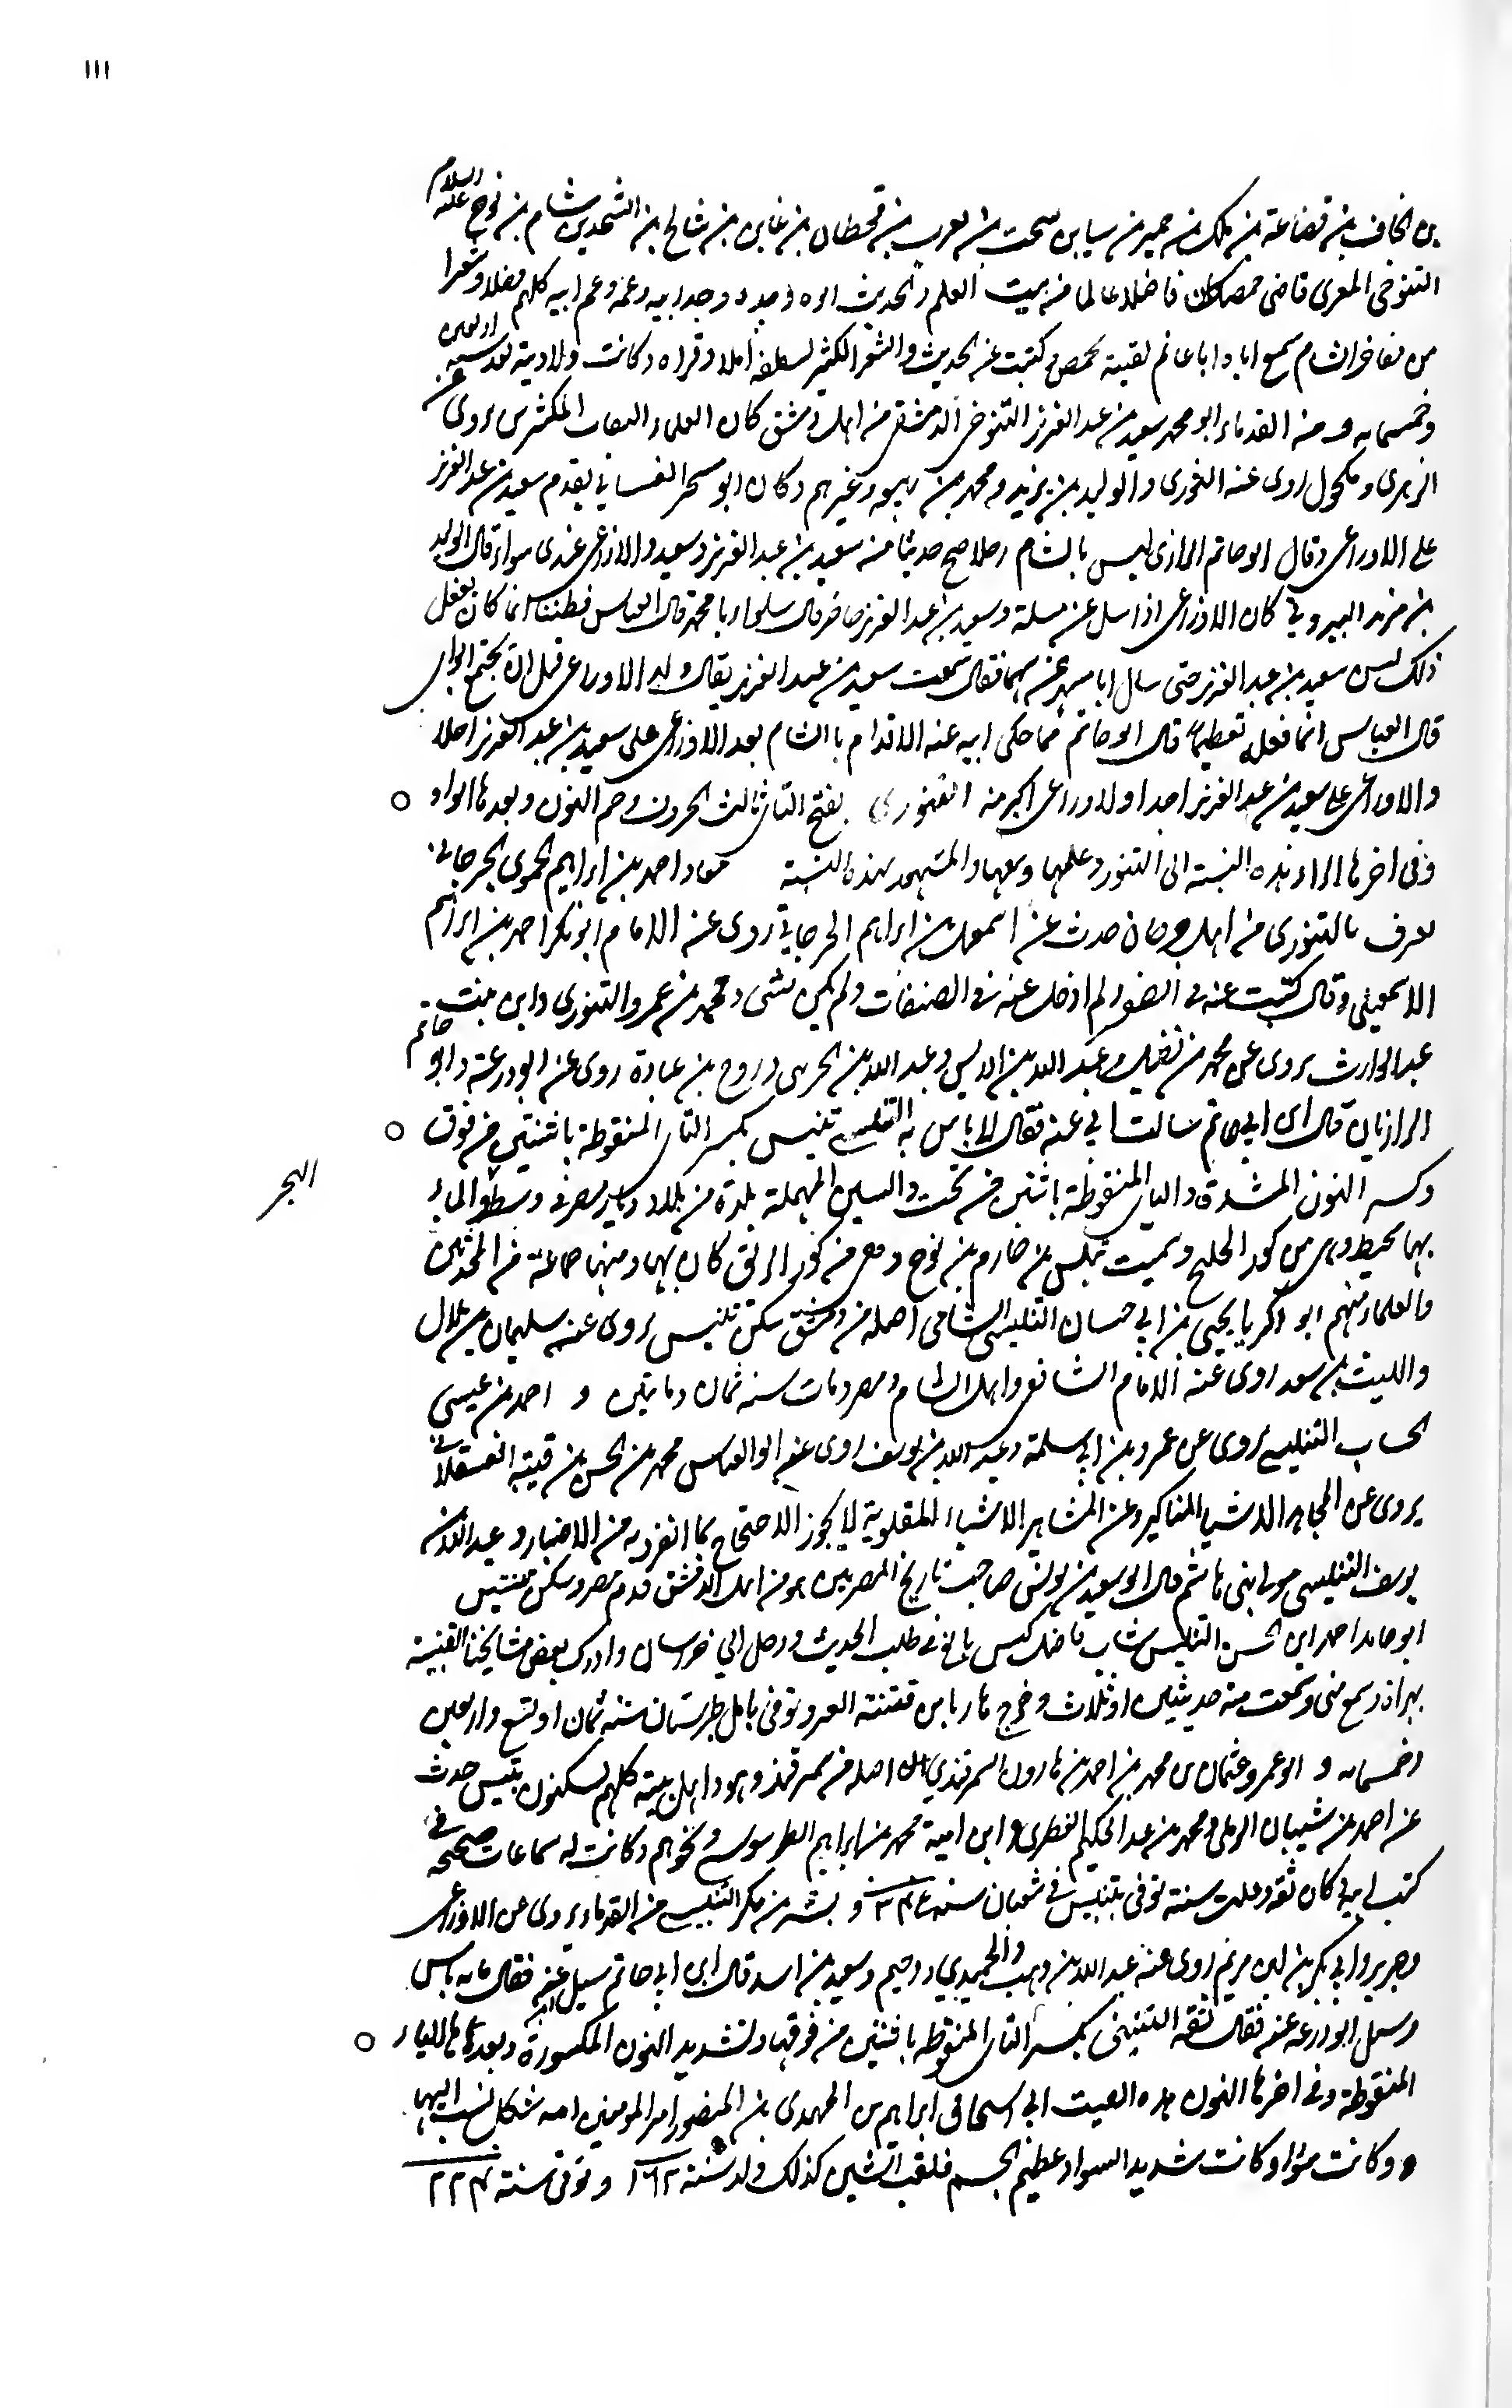 ١١١
بن الحاف بن قضاعة بن ملك بن حمير بن سبا بن يشحب بن يعرب بن قحطان بن عابر بن شالخ بن ارفخشد بن سام بن نوح عليه السلام
التنوخي المعري قاضي حمص كان فاضلا عالما من بيت العلم والحديث ابوه وجده وجد ابيه وعمه وعم ابيه كلهم فضلا وشعرا
من مفاخر الشام سمع اباه واباغانم لقيته بحمص وكتبت عنه الحديث والشعر الكثير لسلفه املا وقراه وكانت ولادته بعد سنه اربعين
وخمسمايه و من القدماء ابو محمد سعيد بن عبد العزيز التنوخي الدمشقي من اهل دمشق كان العلماء الثقات المكثرين يروى عن
الزهرى ومكحول روى عنه الثورى والوليد بن يزيد ومحمد بن ربيعه وغيرهم وكان ابو مسهر الغساني يقدم سعيد بن عبد العزيز
على الاوزاعى وقال ابو حاتم الرازى ليس بالشام رجلا اصح حديثا من سعيد بن عبد العزيز وسعيد والاوزاعى عندى سواء قال الوليد
بن مزيد البيروتي كان الاوزاعى اذا سل عن مسلة وسعيد بن عبد العزيز حاضر قال سلوا ابا محمد قال العباس فظننا انما كان يفعل
ذلك لسن سعيد بن عبد العزيز حتى سال ابا مسهر عن سهما فقال سمعت سعيد بن عبد العزيز يقال ولد الاوزاعى قبل ان يجتمع ابواى
قال العباس انما فعله تعظيما قال ابو حاتم فما حكى ابيه عنه لا اقدم بالشام بعد الاوزاعى على سعيد بن عبد العزيز احدا
والاوزاعى على سعيد بن عبد العزيز احدا ولاوزاعى اكبر منه التنورى بفتح التا ثالث الحروف وضم النون وبعدها الواو
وفى اخرها الراء هذه النسبة الى التنور وعملها وبيعها والمشهور بهذه النسبة معاد احمد بن ابراهيم الحموى الجرجاني
يعرف بالتنورى من اهل جرجان حدث عن اسمعيل بن ابراهيم الجرجاني روى عنه الامام ابو بكر احمد بن ابراهيم
الاسمعيلى وقال كتبت عنه فى الصغر ولم ادخل عنه فى المصنفات ولم يكن بشى ومحمد بن عمرو التنورى وابن بنت
عبد الوارث يروى عن محمد بن فضيل وعبد الله بن ادريس وعبد الله بن الحرسى وروح بن عبادة روى عنه ابو زرعة وابو حاتم
الرازيان قال ابن ابي حاتم سالت ابي عنه فقال لا باس به التنيسى تنيس بكسر التاى المنقوطة باثنتين من فوق
وكسر النون المشددة والياى المنقوطة باثنتين من تحت والسين المهملة بلدة من بلاد ديار مصر فى وسط البحر والماء
بها محيط وهى من كور الخليج وسميت بتنيس بن حام بن نوح و هى من كور الريف كان بها ومنها جماعة من المحدثين
والعلماء منهم ابو ذكريا يحيى بن ابي حسان التنيسى الشامى اصله من دمشق سكن تنيس يروى عنه سليمان بن بلال
والليث بن سعد روى عنه الامام الشافعى واهل الشام ومصر ومات سنه ثمان ومايتين و احمد بن عيسى
الخشاب التنيسى يروى عن عمرو بن ابي سلمة وعبد الله بن يوسف روى عنه ابو العباس محمد بن الحسن بن قتيبه العسقلانى
يروى عن المجاهر الاشيا المناكير وعن المشاهير الاشياء المقلوبة لا يجوز الاحتجاج بما انفرد به من الاخبار و عبد الله بن
يوسف التنيسى مولى بنى هاشم قال ابو سعيد بن يونس صاحب تاريخ المصريين هو من اهل الدمشق قدم مصر وسكن تنيس
ابو حامد احمد ابن الحسن التنيسى شاب فاضل كيس بالغ فى طلب الحديث ورحل الي خراسان وادرك بعض مشايخنا لقيته
بهراة وسمع منى وسمعت منه حديثين او ثلاث وخرج هاربا من فتنة الغز وتوفى بامل طبرستان سنه ثمان او تسع واربعين
وخمسمايه و ابو عمرو عثمان بن محمد بن احمد بن هارون السمرقندي اصله من سمرقند وهو واهل بيته كلهم يسكنون تنيس حدث
عن احمد بن شيبان الرملى ومحمد بن عبد الحكيم القطرى وابى امية محمد بن ابراهيم الطرسوسى ونحوهم وكانت له سماعات صحيحه فى
كتب ابيه كان ثقة وعلت سنه توفى بتنيس فى شعبان سنه ٣٤٥ و بشر بن بكر التنيسى من القدماء يروى عن الاوزاعى
وجرير وابي بكر بن ابى مريم روى عنه عبد الله بن وهب والحميدي ودحيم وسعيد بن اسد قال ابن ابي حاتم سيل ابى عنه فقال ما به باس
وسيل ابو زرعه عنه فقال ثقه التنينى بكسر التاى المنقوطه باثنتين من فوقها وتشديد النون المكسورة وبعدها الياء
المنقوطة وفى اخرها النون هذه اللقب الى اسحاق ابراهيم بن المهدى بن المنصور امير المومنين امه شكله نسب اليها
و وكانت سودا وكانت شديد السواد عظيم الجسم فلقب التنين كذلك ولد سنة ١٦٢ و توفى سنة ٢٢٤